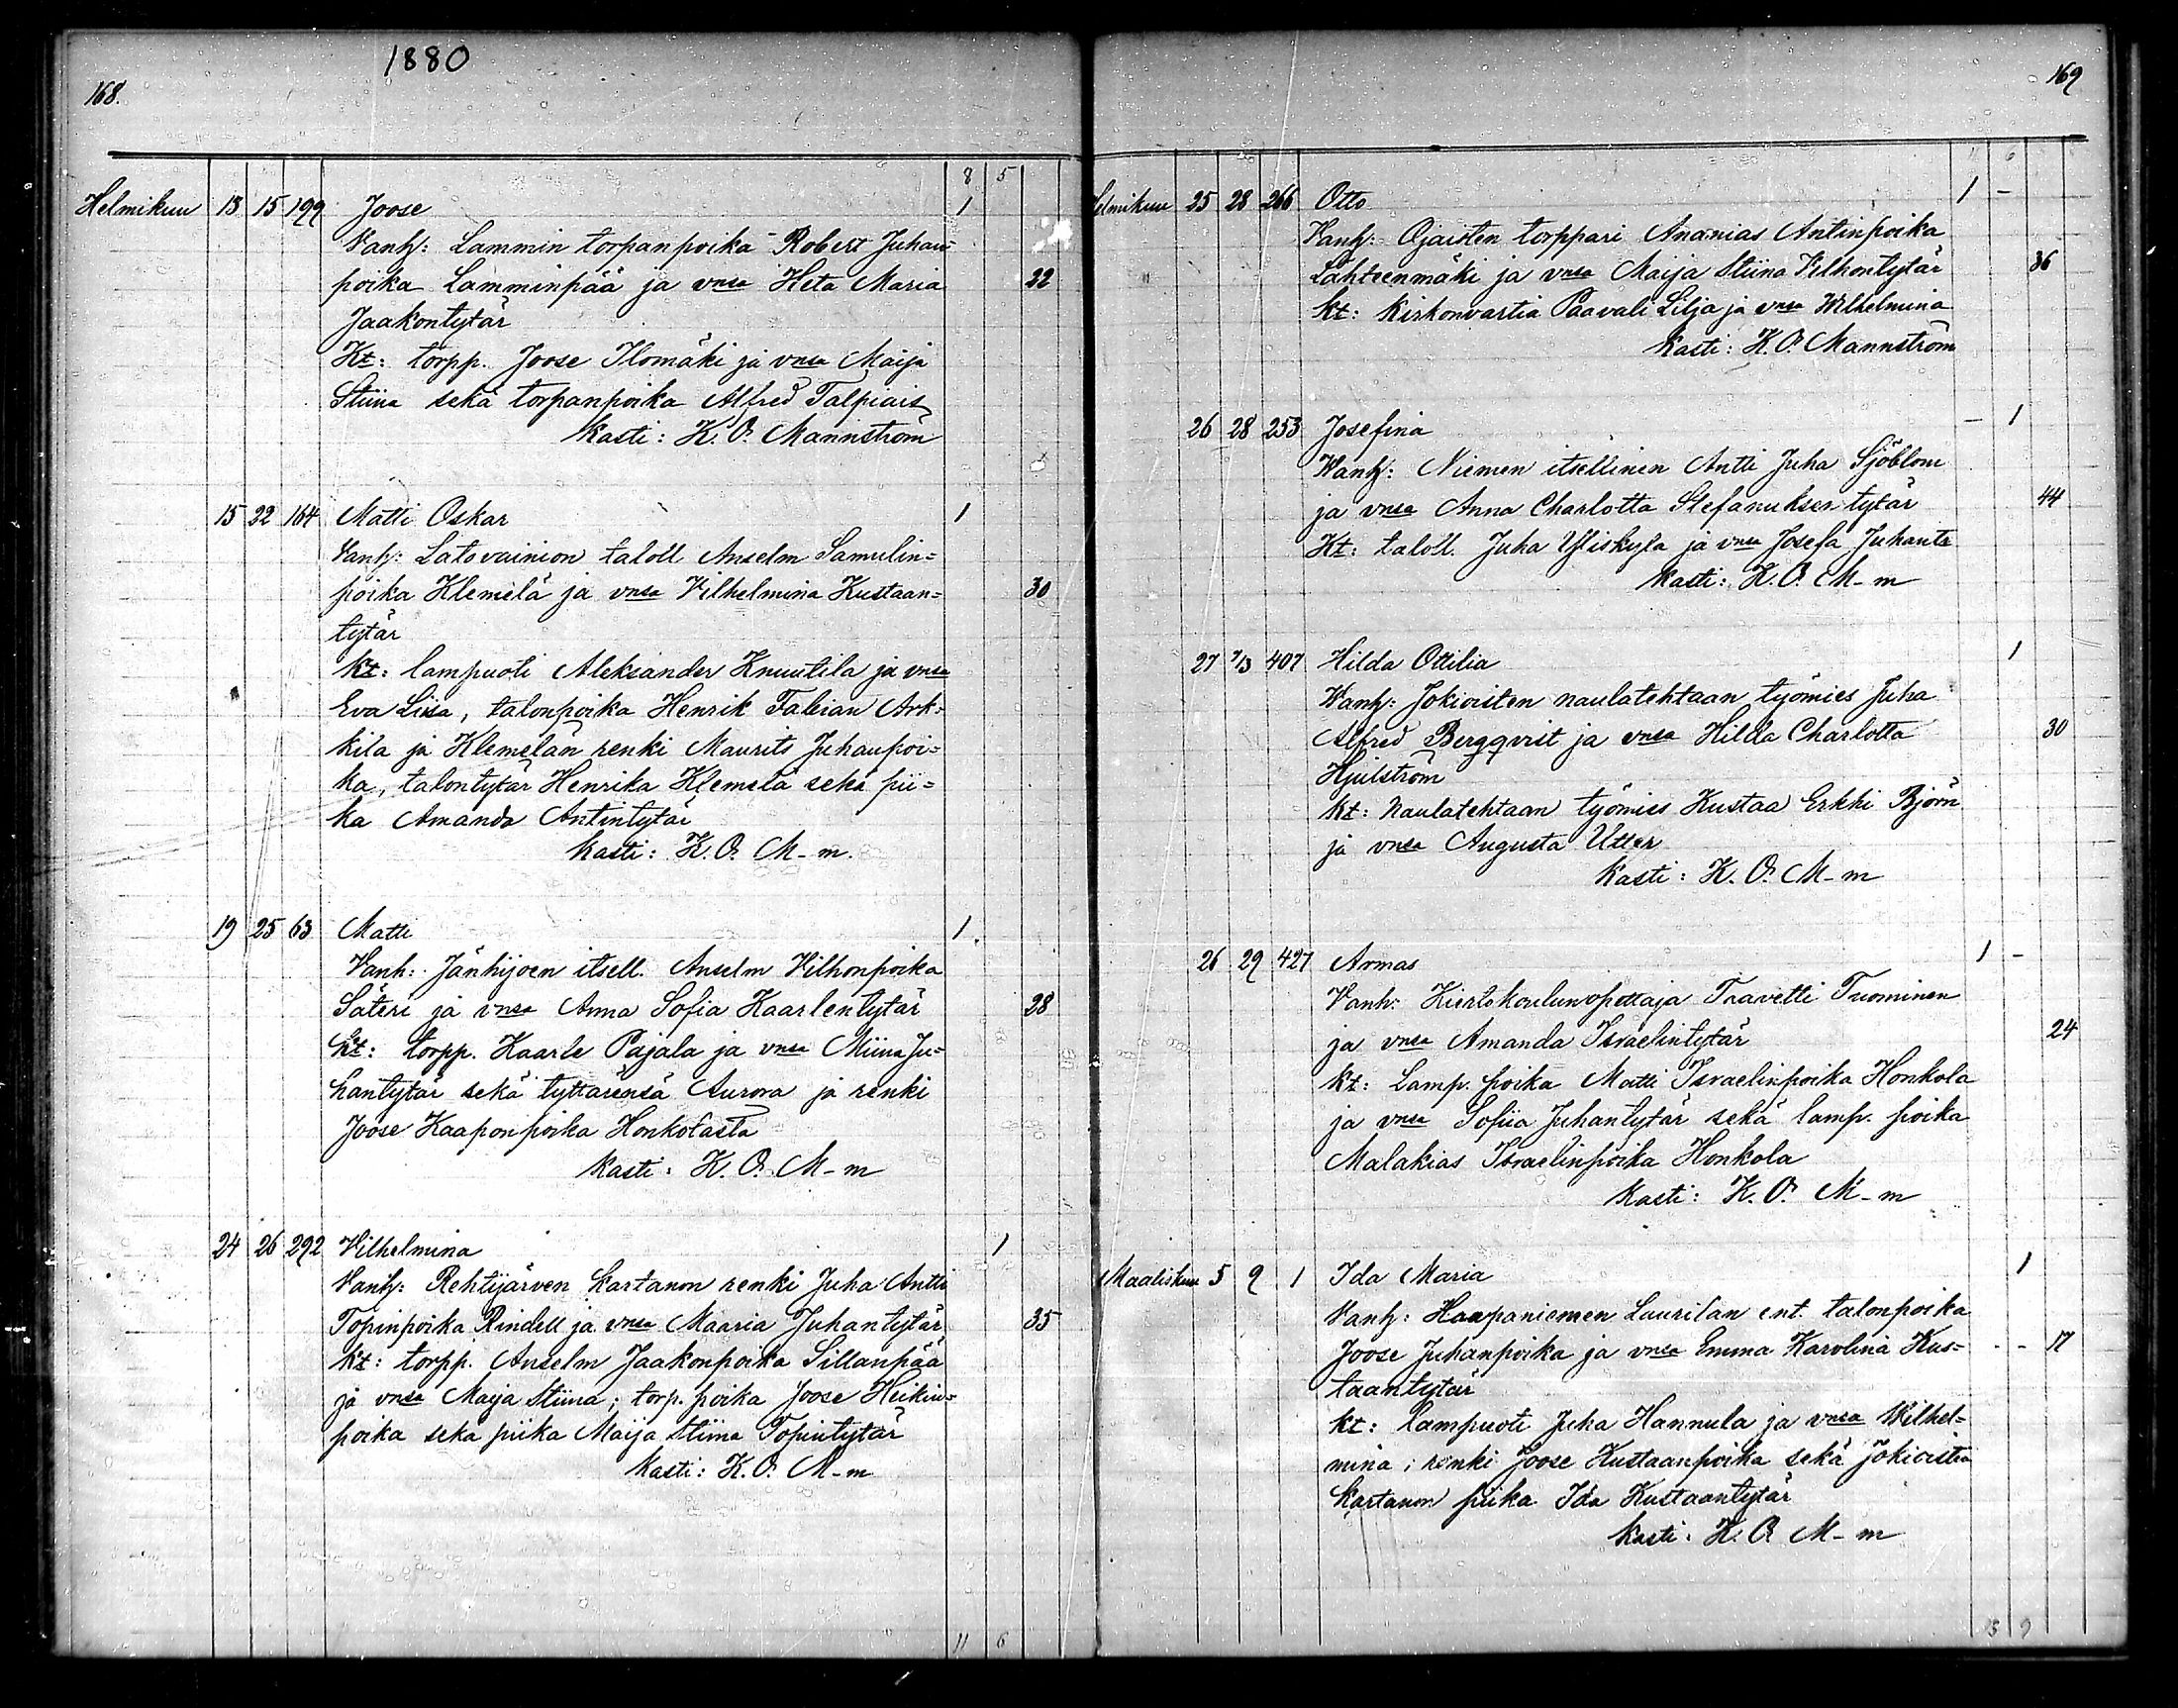 1880
168.
8 5
Helmikuu 13 15 199 Joose 1
Vanh: Lammin torpanpoika Robert Juhan-
poika Lamminpää ja vnsa Heta Maria 22
Jaakontytär
Kt: torpp. Joose Ilomäki ja vnsa Maija
Stiina sekä torpanpoika Alfred Talpiais
Kasti: K. O. Mannström
15 22 164 Matti Oskar 1
Vanh: Latovainion taloll Anselm Samulin=
poika Klemelä ja vnsa Vilhelmina Kustaan= 30
tytär
Kt: lampuoti Aleksander Knuutila ja vnsa
Eva Liisa, talonpoika Henrik Fabian Ark=
kila ja Klemelän renki Maurits Juhanpoi=
ka, talontytär Henrika Klemelä sekä pii=
ka Amanda Antintytär
Kasti: K. O. M-m.
19 25 63 Matti 1
Vanh: Jänhijoen itsell. Anselm Vilhonpoika
Säteri ja vnsa Anna Sofia Kaarlentytär 28
Kt: torpp. Kaarle Pajala ja vnsa Miina Ju=
hantytär sekä tyttärensä Aurora ja renki
Joose Kaaponpoika Honkolasta
Kasti: K. O. M-m
24 26 292 Vilhelmina 1
Vanh: Rehtijärven Kartanon renki Juha Antti
Topinpoika Rindell ja vnsa Maaria Juhantytär 35
Kt: torpp. Anselm Jaakonpoika Sillanpää
ja vnsa Maija Stiina; torp. poika Joose Heikin=
poika sekä piika Maija Stiina Topintytär
Kasti: K. O. M-m
11 6
169
11 6
Helmikuu 25 28 266 Otto 1 -
Vanh: Ojaisten torppari Ananias Antinpoika
Lähteenmäki ja vnsa Maija Stiina Vilhontytär 36
Kt: Kirkonvartia Paavali Lilja ja vnsa Wilhelmina
Kasti: K. O. Mannström
26 28 253 Josefina - 1
Wanh: Niemen itsellinen Antti Juha Sjöblom
ja vnsa Anna Charlotta Stefanuksen tytär 44
Kt: taloll. Juha Yliskylä ja vnsa Josefa Juhant:
Kasti: K. O. M-m
27 7/3 407 Hilda Ottilia 1
Wanh: Jokioisten naulatehtaan työmies Juha
Alfred Bergqvist ja vnsa Hilda Charlotta 30
Hjulström
Kt: Naulatehtaan työmies Kustaa Erkki Björn
ja vnsa Augusta Utter
Kasti: K. O. M-m
26 29 427 Armas 1 -
Vanh: Kiertokoulunopettaja Taavetti Tuominen
ja vnsa Amanda Israelintytär 24
Kt: Lamp. poika Matti Israelinpoika Honkola
ja vnsa Sofiia Juhantytär sekä lamp. poika
Malakias Israelinpoika Honkola
Kasti: K. O. M-m
Maaliskuu 5 9 1 Ida Maria 1
Vanh: Haapaniemen Laurilan ent. talonpoika
Joose Juhanpoika ja vnsa Emma Karolina Kus= - - 17
taantytär
Kt: lampuoti Juha Hannula ja vnsa Wilhel=
mina; renki Joose Kustaanpoika sekä Jokioisten
Kartanon piika Ida Kustaantytär
Kasti: K. O. M-m
13 9